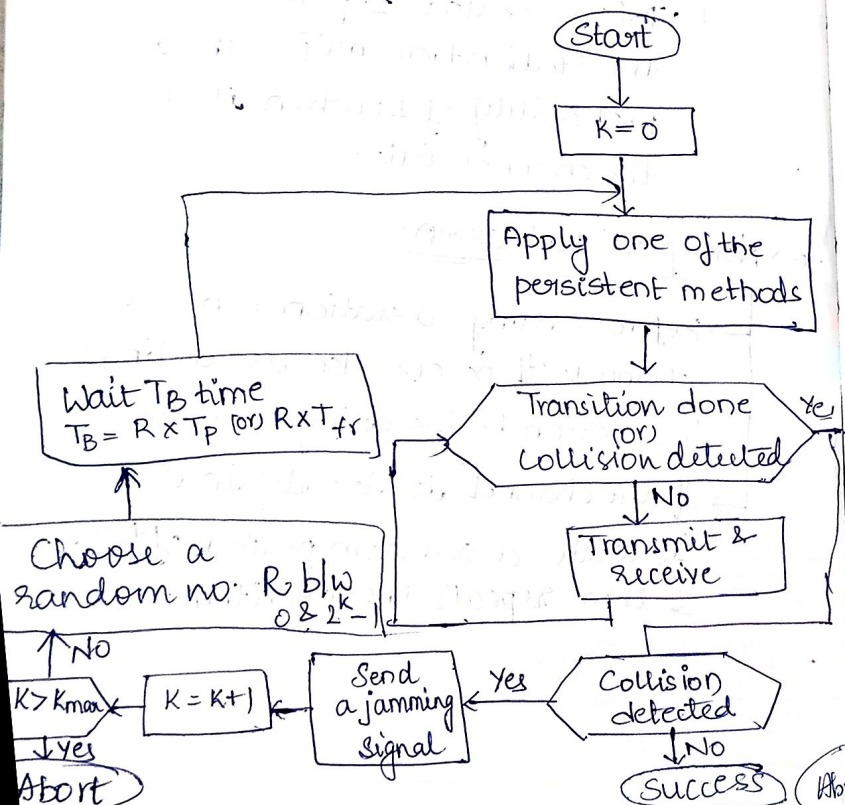 Start
K=0
Apply one of the
persistent methods
Transition done
(or)
Collision detected
Yes
No
Transmit &
receive
Collision
detected
No
Success
Yes
Send
a jamming
signal
K = K+1
K > Kmax
Yes
Abort
No
Choose a
random no. R b/w
0 & 2^k-1
Wait TB time
TB = R x TP (or) R x Tfr